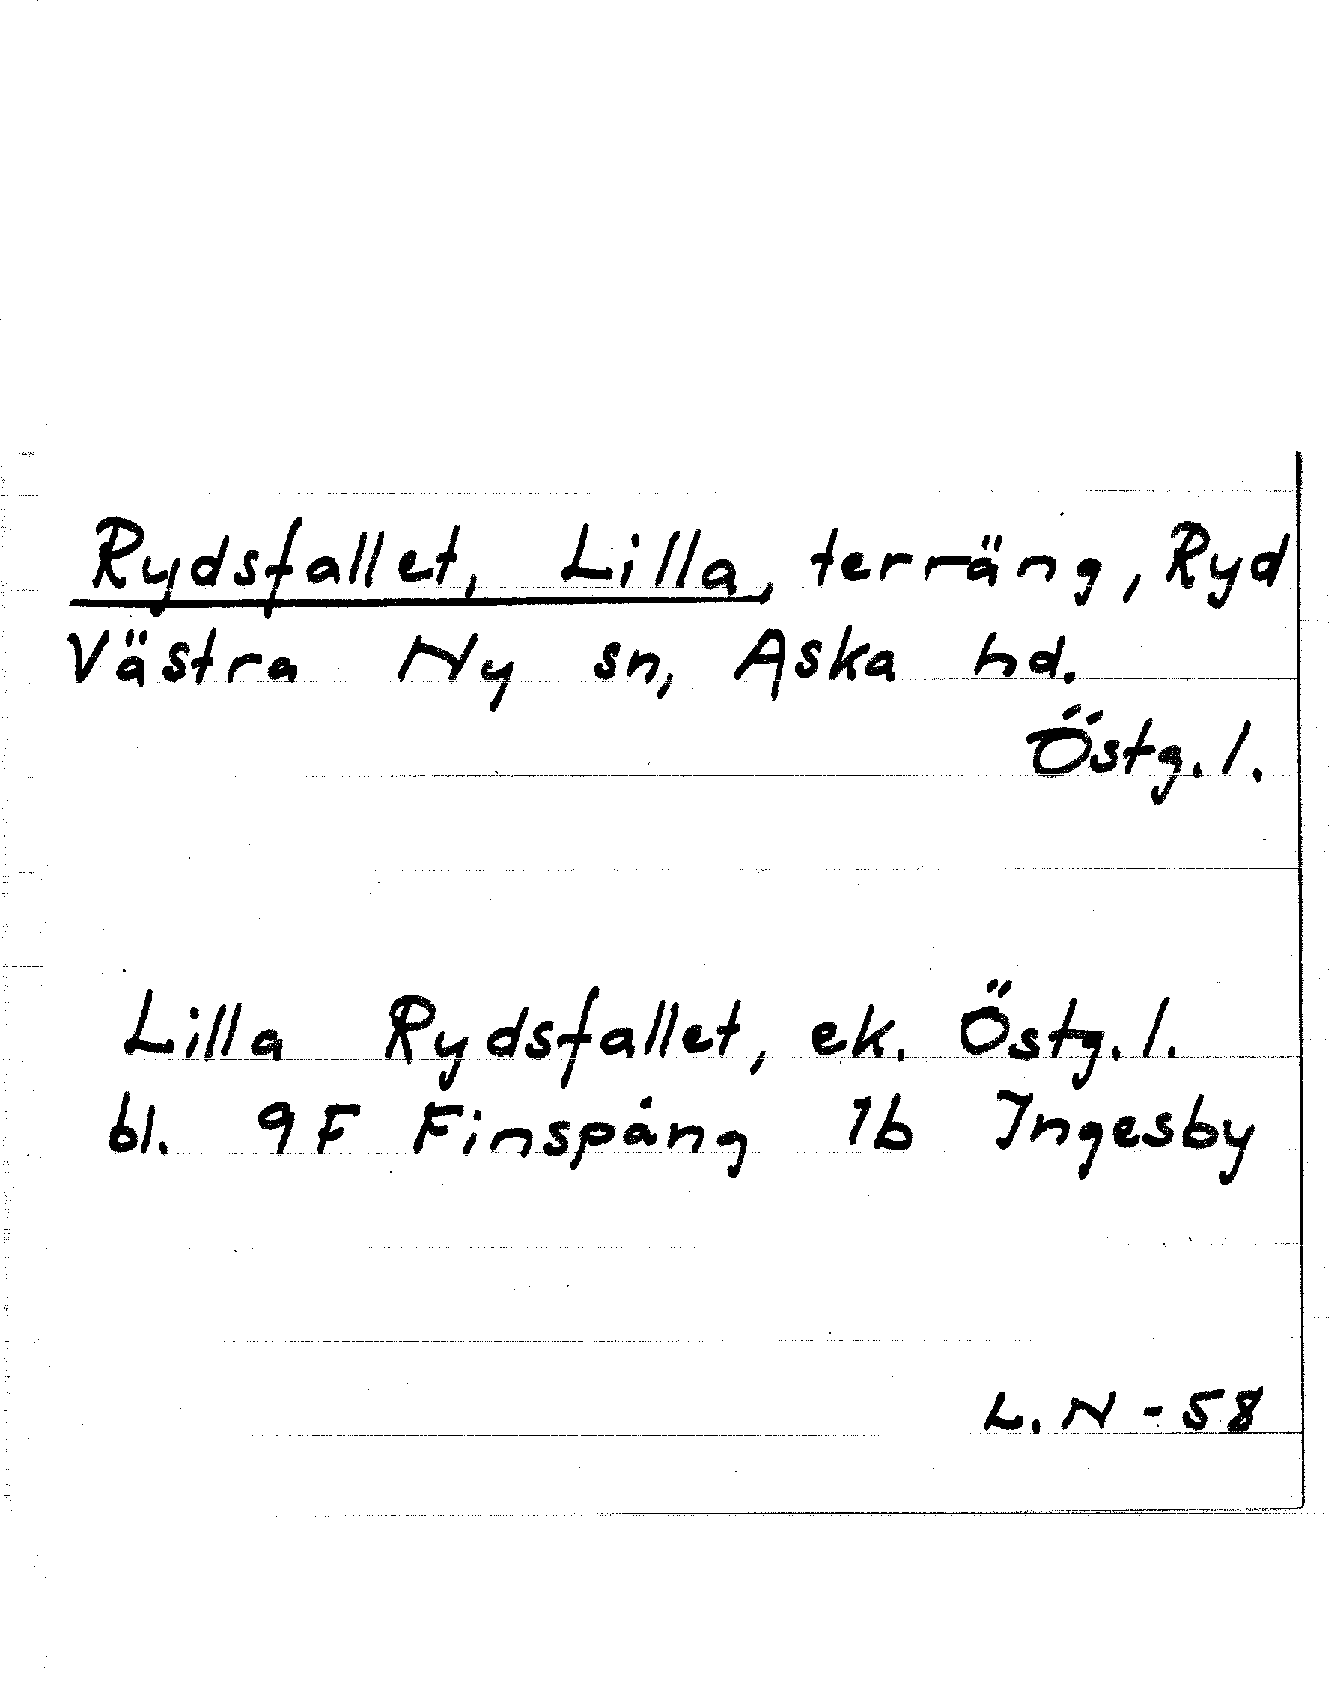 Rydsfallet, Lilla, terräng, Ryd
Västra Ny sn, Aska hd.
Östg. l.
Lilla Rydsfallet, ek. Östg. l.
bl. 9F Finspång 1b Ingesby
L. N - 58